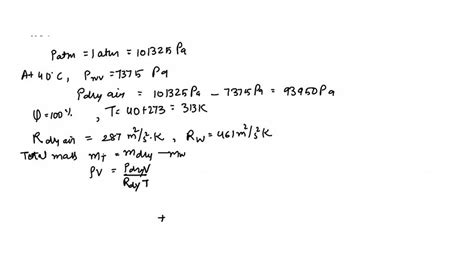 Patm = 1 atm = 101325 Pa
At 40°C, Pmw = 7375 Pa
Pdry air = 101325 Pa - 7375 Pa = 93950 Pa
φ = 100%, T = 40+273 = 313K
Rdry air = 287 m²/s²·K, Rw = 461 m²/s²K
Total mass mT = mdry — mw
ρV = PdryV / RdryT
+